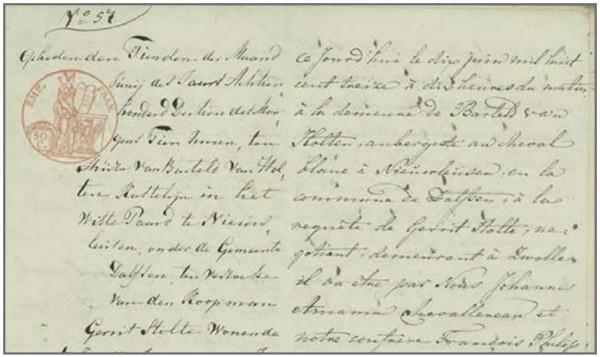 No 57
Opheden den Tienden der Maand
Junij des Jaars Achttien
honderd Dertien des Mor-
gens Tien Uuren, ten
Huize van Barteld van Hol-
ten Kastelijn in het
Witte Paard te Nieuw-
leusen, onder de Gemeente
Dalfsen, ten verzoeke
van den Koopman
Gerrit Stolte Wonende
EMP. FRAN.
50
C.
ce jourd'hui le dix juin mil huit
cent treize à dix heures du matin
à la demeure de Barteld van
Holten, aubergiste au cheval
blanc à Nieuwleusen, en la
commune de Dalfsen, à la
requête de Gerrit Stolte, ne-
gotiant, demeurant à Zwolle
il va être par Nous Johannes
Amama Chevallereau et
notre confrère François Philip